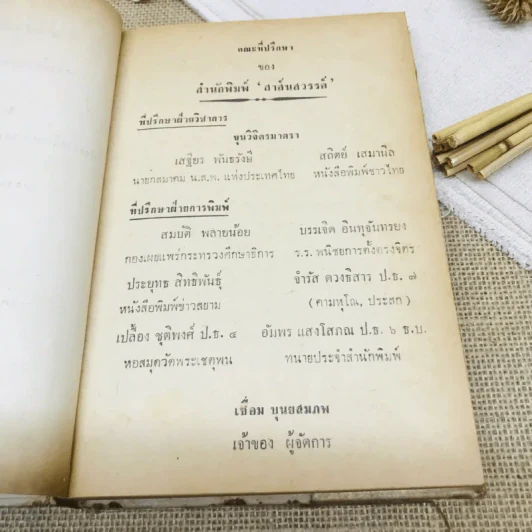 คณะที่ปรึกษา
ของ
สำนักพิมพ์ 'สาส์นสวรรค์'
ที่ปรึกษาฝ่ายวิชาการ
ขุนวิจิตรมาตรา
เสฐียร พันธรังษี สถิตย์ เสมานิล
นายกสมาคม น.ส.พ. แห่งประเทศไทย หนังสือพิมพ์ชาวไทย
ที่ปรึกษาฝ่ายการพิมพ์
สมบัติ พลายน้อย บรรเจิด อินทุจันทรยง
กองเผยแพร่กระทรวงศึกษาธิการ ร.ร. พนิชยการตั้งตรงจิตร
ประยุทธ สิทธิพันธุ์ จำรัส ดวงธิสาร ป.ธ. ๗
หนังสือพิมพ์ข่าวสยาม (คามหุโณ, ประสก)
เปลื้อง ชุติพงศ์ ป.ธ. ๔ อัมพร แสงโสภณ ป.ธ. ๖ ธ.บ.
หอสมุดวัดพระเชตุพน ทนายประจำสำนักพิมพ์
เชื่อม บุนยสมภพ
เจ้าของ ผู้จัดการ